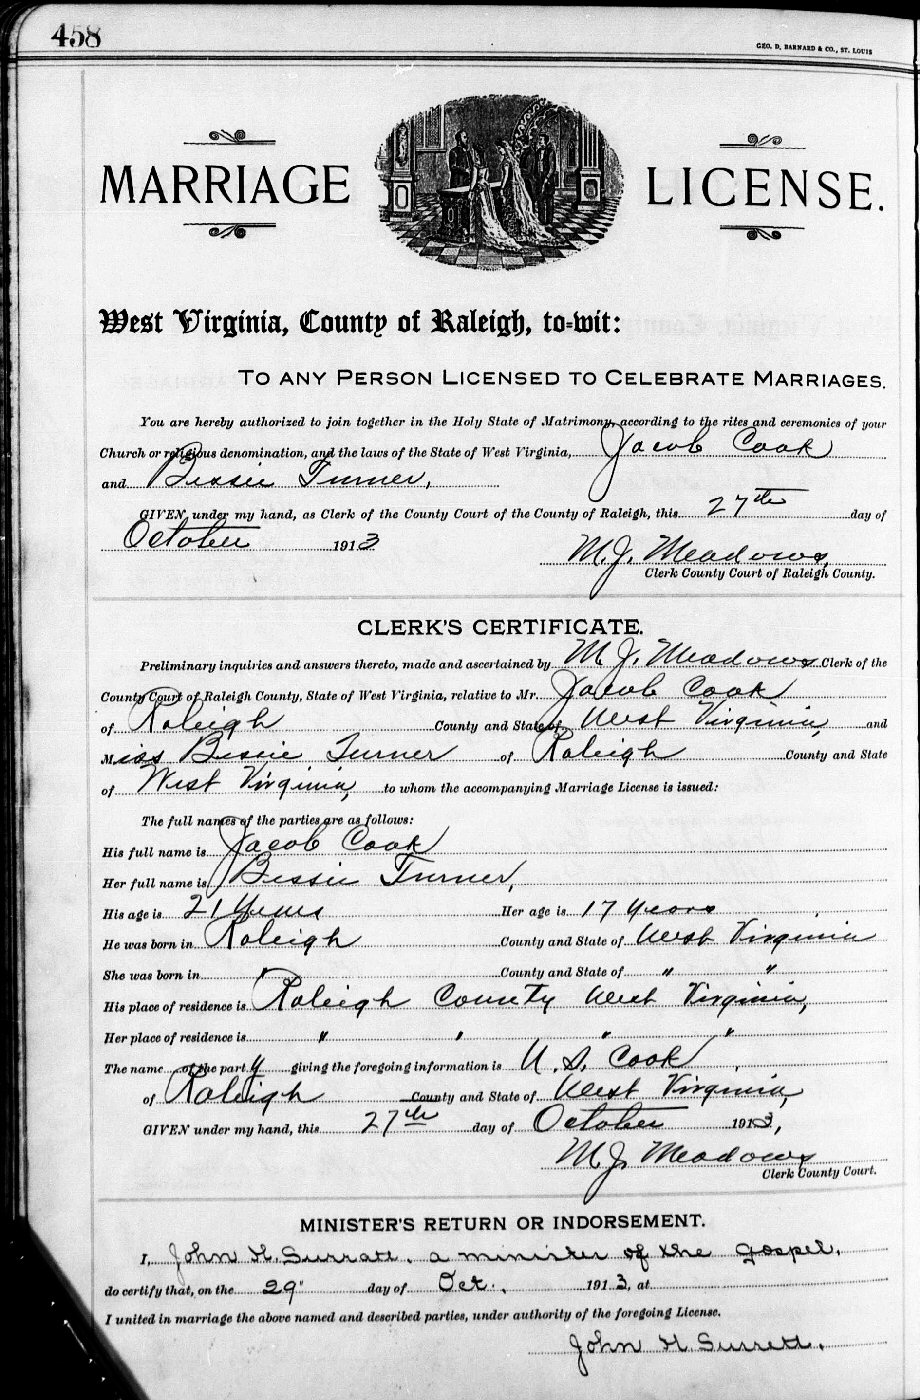 458
GEO. D. BARNARD & CO., ST. LOUIS
MARRIAGE LICENSE.
West Virginia, County of Raleigh, to-wit:
TO ANY PERSON LICENSED TO CELEBRATE MARRIAGES.
You are hereby authorized to join together in the Holy State of Matrimony, according to the rites and ceremonies of your
Church or religious denomination, and the laws of the State of West Virginia, Jacob Cook
and Bessie Turner,
GIVEN under my hand, as Clerk of the County Court of the County of Raleigh, this 27th day of
October 1913
M. J. Meadows,
Clerk County Court of Raleigh County.
CLERK'S CERTIFICATE.
Preliminary inquiries and answers thereto, made and ascertained by M. J. Meadows Clerk of the
County Court of Raleigh County, State of West Virginia, relative to Mr. Jacob Cook
of Raleigh County and State of West Virginia, and
Miss Bessie Turner of Raleigh County and State
of West Virginia, to whom the accompanying Marriage License is issued:
The full names of the parties are as follows:
His full name is Jacob Cook
Her full name is Bessie Turner,
His age is 21 Years Her age is 17 years
He was born in Raleigh County and State of West Virginia
She was born in " County and State of " "
His place of residence is Raleigh County West Virginia,
Her place of residence is " " " "
The name of the party giving the foregoing information is U. S. Cook
of Raleigh County and State of West Virginia,
GIVEN under my hand, this 27th day of October 1913,
M. J. Meadows
Clerk County Court.
MINISTER'S RETURN OR INDORSEMENT.
I, John H. Surratt, a minister of the gospel,
do certify that, on the 29 day of Oct. 1913, at
I united in marriage the above named and described parties, under authority of the foregoing License.
John H. Surrett.